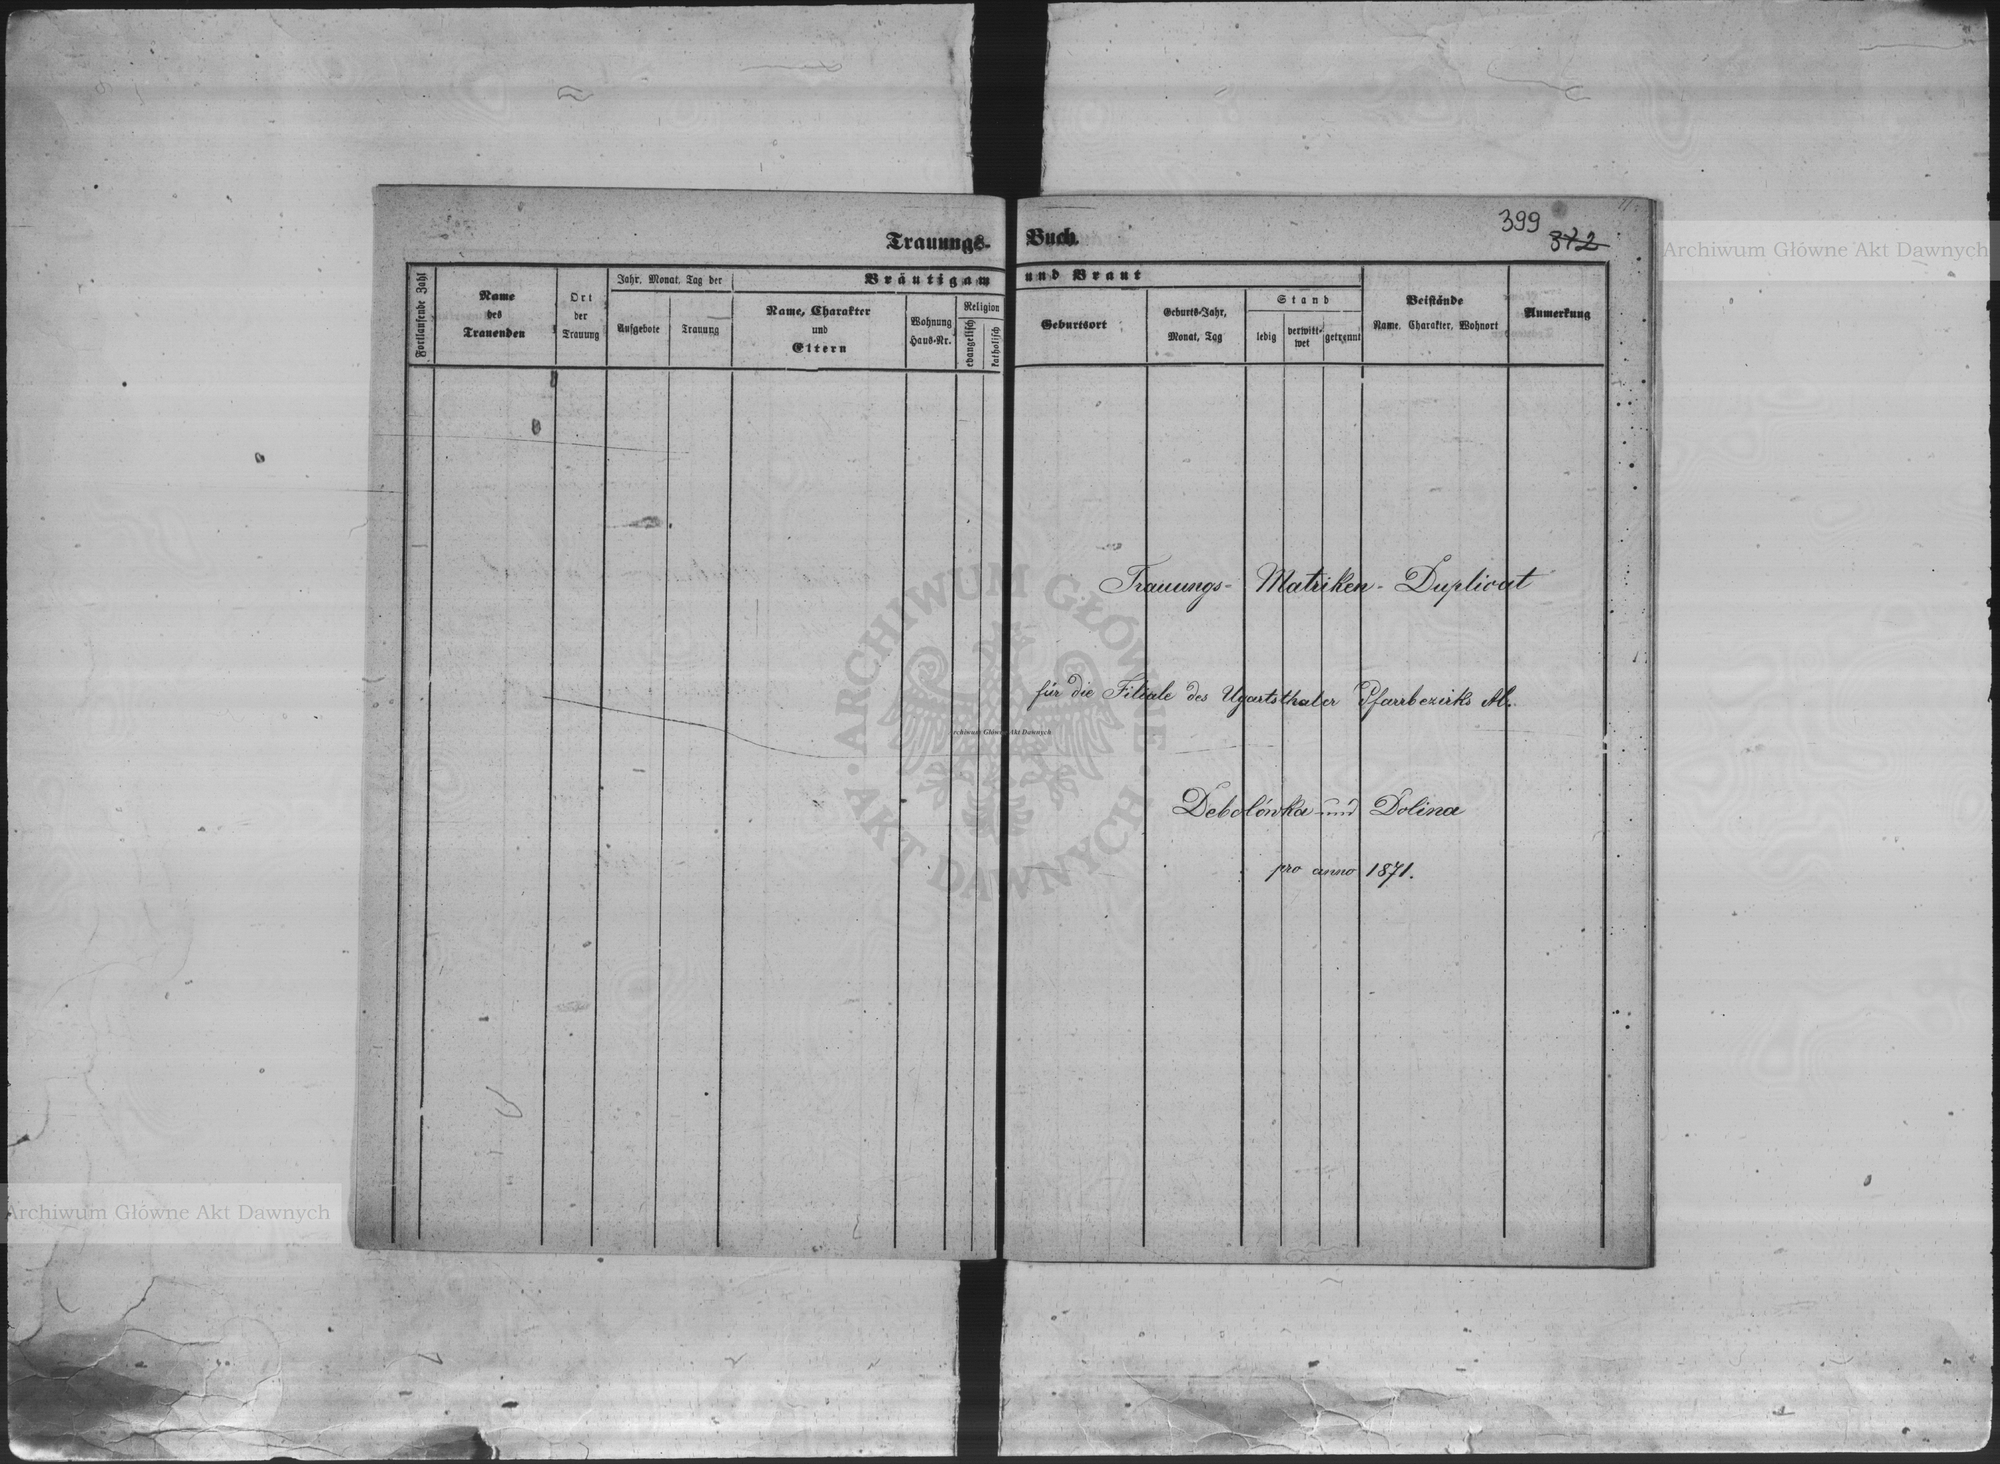 Trauungs-Buch.
399
372
Fortlaufende Zahl
Name
des
Trauenden
Ort
der
Trauung
Jahr, Monat, Tag der
Aufgebote
Trauung
Bräutigam und Braut
Name, Charakter
und
Eltern
Wohnung
Haus-Nr.
Religion
evangelisch
katholisch
Geburtsort
Geburts-Jahr,
Monat, Tag
Stand
ledig
verwitt-
wet
getrennt
Beistände
Name, Charakter, Wohnort
Anmerkung
Trauungs- Matriken- Duplicat
für die Filiale des Ugartsthaler Pfarrbezirks
Debolówka und Dolina
pro anno 1871.
ARCHIWUM GŁÓWNE AKT DAWNYCH
Archiwum Główne Akt Dawnych
Archiwum Główne Akt Dawnych
Archiwum Główne Akt Dawnych